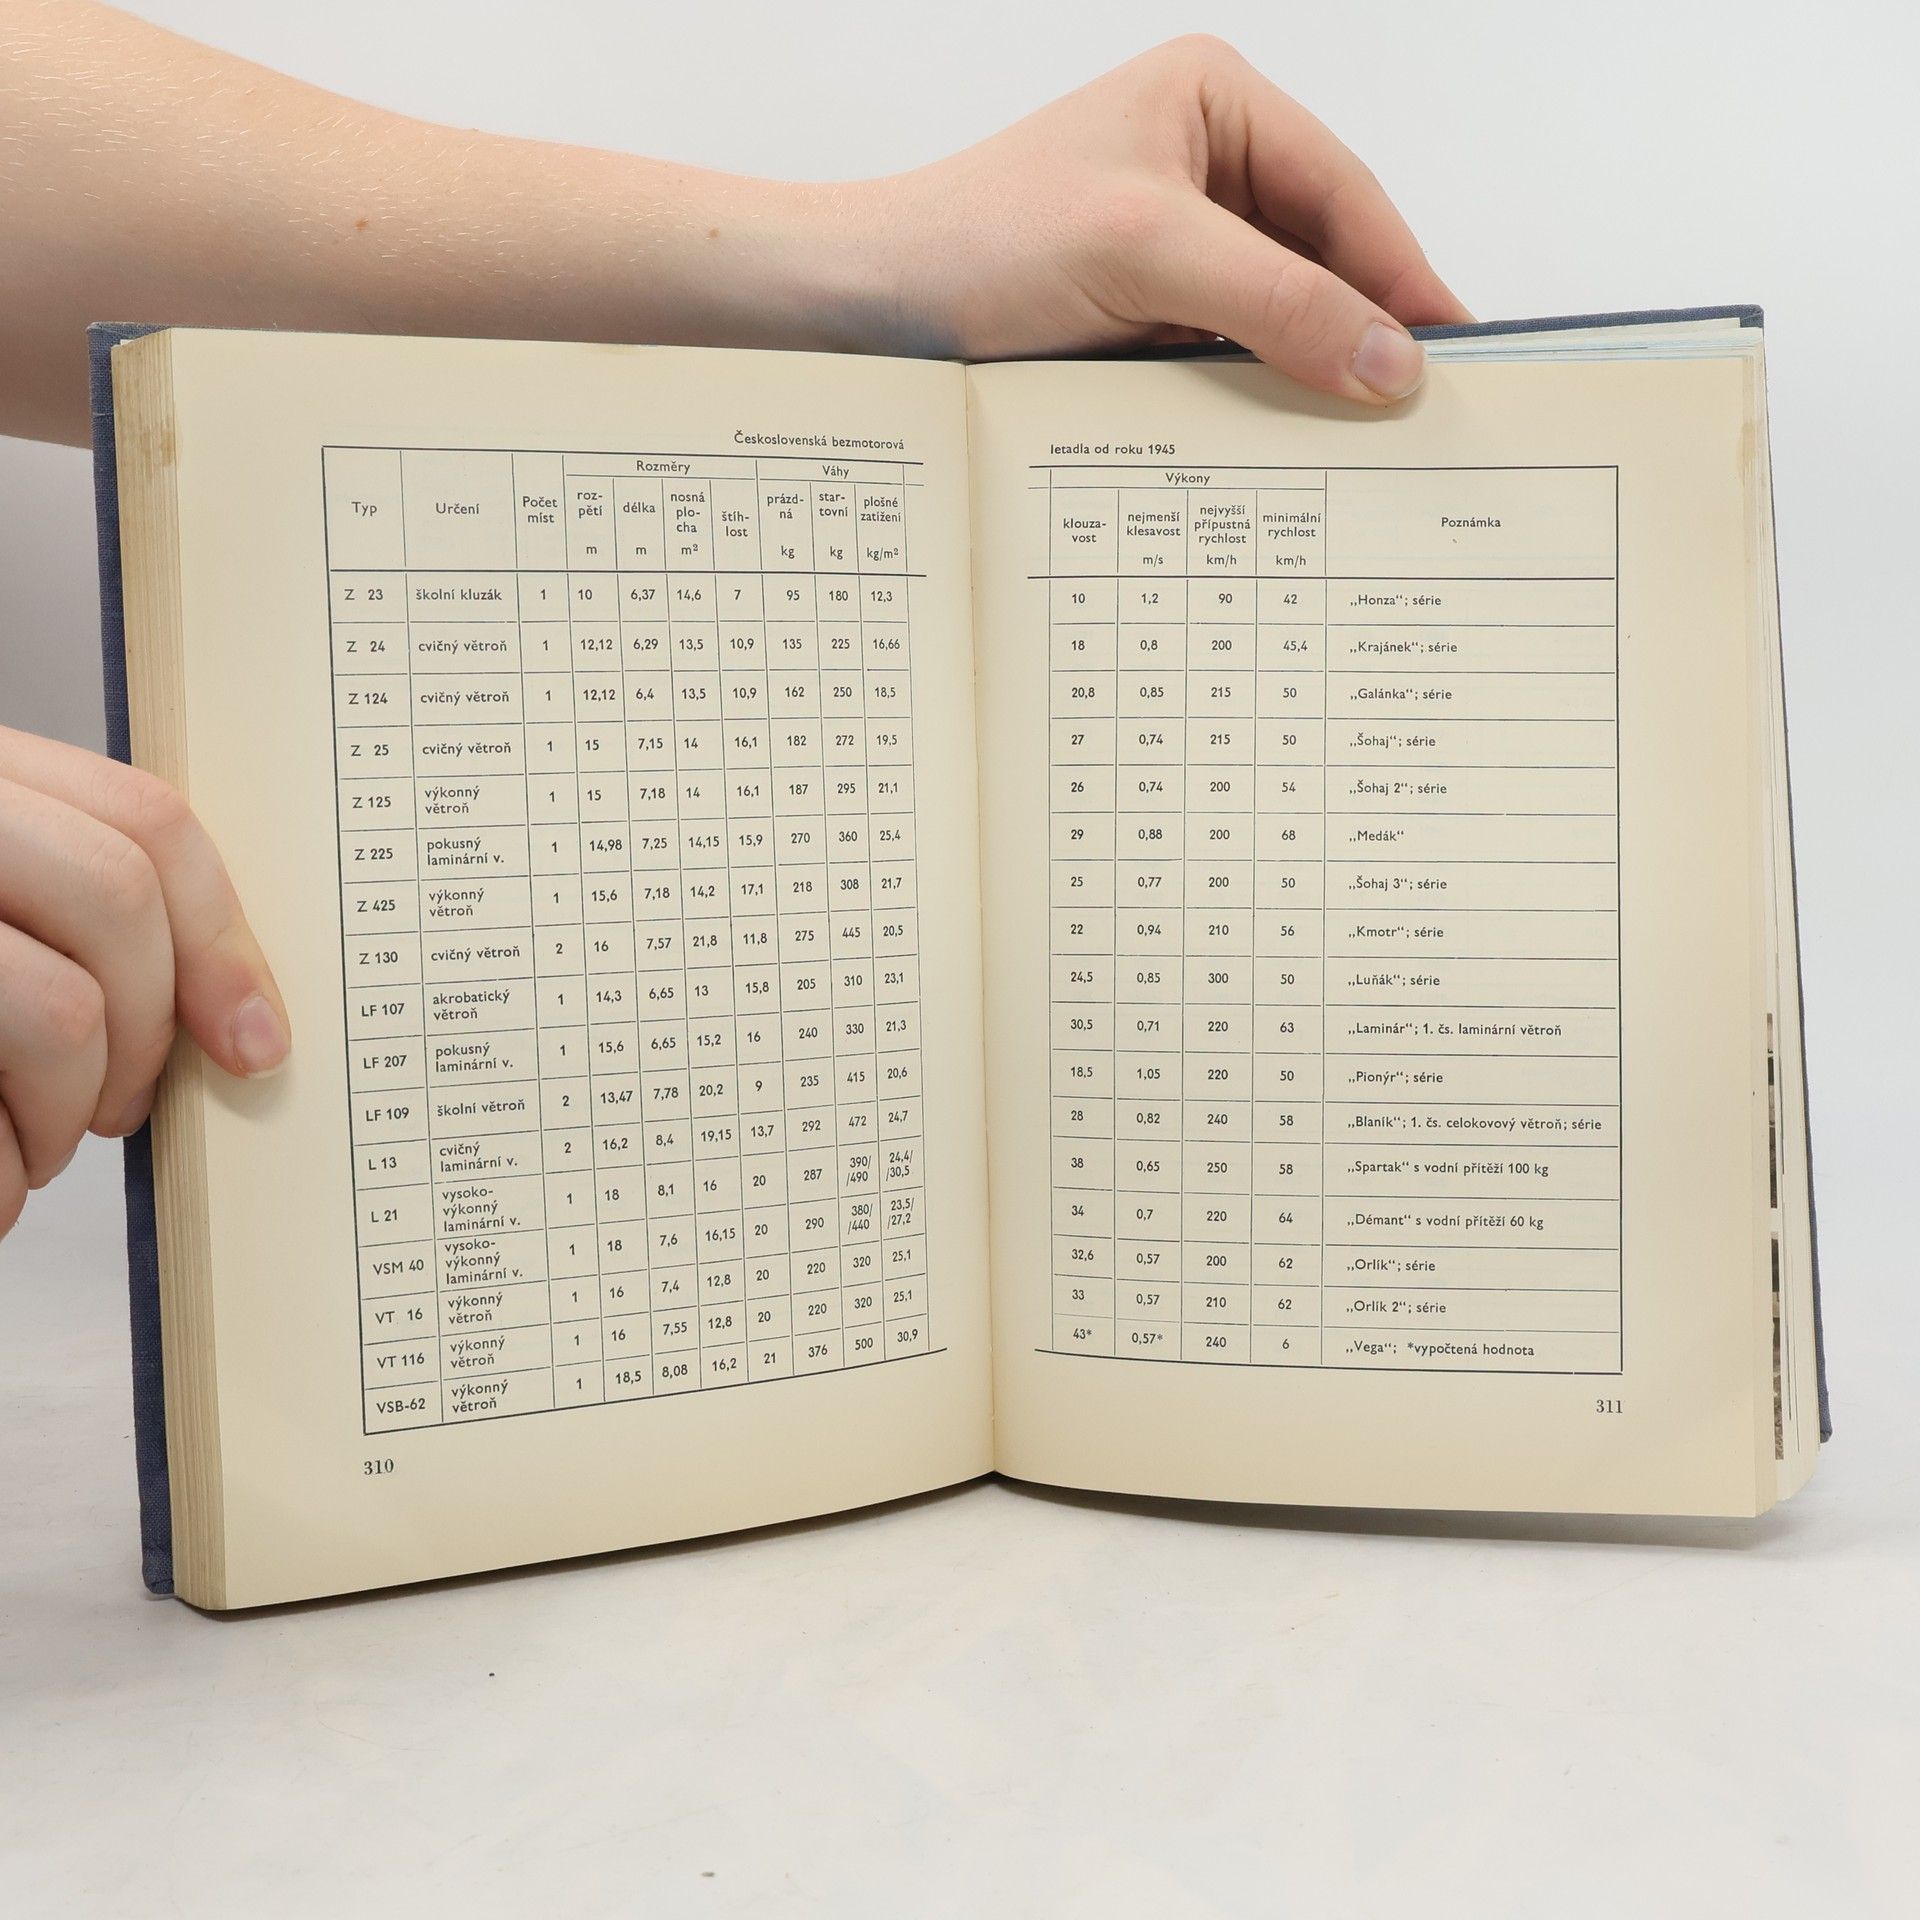 Československá bezmotorová
Rozměry Váhy
Typ Určení Počet míst roz- pětí m délka m nosná plo- cha m² štíh- lost prázd- ná kg star- tovní kg plošné zatížení kg/m²
Z 23 školní kluzák 1 10 6,37 14,6 7 95 180 12,3
Z 24 cvičný větroň 1 12,12 6,29 13,5 10,9 135 225 16,66
Z 124 cvičný větroň 1 12,12 6,4 13,5 10,9 162 250 18,5
Z 25 cvičný větroň 1 15 7,15 14 16,1 182 272 19,5
Z 125 výkonný větroň 1 15 7,18 14 16,1 187 295 21,1
Z 225 pokusný laminární v. 1 14,98 7,25 14,15 15,9 270 360 25,4
Z 425 výkonný větroň 1 15,6 7,18 14,2 17,1 218 308 21,7
Z 130 cvičný větroň 2 16 7,57 21,8 11,8 275 445 20,5
LF 107 akrobatický větroň 1 14,3 6,65 13 15,8 205 310 23,1
LF 207 pokusný laminární v. 1 15,6 6,65 15,2 16 240 330 21,3
LF 109 školní větroň 2 13,47 7,78 20,2 9 235 415 20,6
L 13 cvičný laminární v. 2 16,2 8,4 19,15 13,7 292 472 24,7
L 21 vysoko- výkonný laminární v. 1 18 8,1 16 20 287 390/ /490 24,4/ /30,5
VSM 40 vysoko- výkonný laminární v. 1 18 7,6 16,15 20 290 380/ /440 23,5/ /27,2
VT 16 výkonný větroň 1 16 7,4 12,8 20 220 320 25,1
VT 116 výkonný větroň 1 16 7,55 12,8 20 220 320 25,1
VSB-62 výkonný větroň 1 18,5 8,08 16,2 21 376 500 30,9
310
letadla od roku 1945
Výkony
klouza- vost nejmenší klesavost m/s nejvyšší přípustná rychlost km/h minimální rychlost km/h Poznámka
10 1,2 90 42 „Honza“; série
18 0,8 200 45,4 „Krajánek“; série
20,8 0,85 215 50 „Galánka“; série
27 0,74 215 50 „Šohaj“; série
26 0,74 200 54 „Šohaj 2“; série
29 0,88 200 68 „Medák“
25 0,77 200 50 „Šohaj 3“; série
22 0,94 210 56 „Kmotr“; série
24,5 0,85 300 50 „Luňák“; série
30,5 0,71 220 63 „Laminár“; 1. čs. laminární větroň
18,5 1,05 220 50 „Pionýr“; série
28 0,82 240 58 „Blaník“; 1. čs. celokovový větroň; série
38 0,65 250 58 „Spartak“ s vodní přítěží 100 kg
34 0,7 220 64 „Démant“ s vodní přítěží 60 kg
32,6 0,57 200 62 „Orlík“; série
33 0,57 210 62 „Orlík 2“; série
43* 0,57* 240 6 „Vega“; *vypočtená hodnota
311